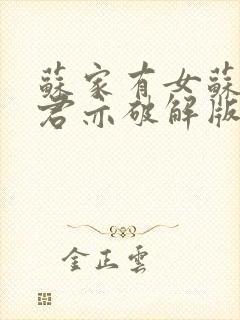 蘇家有女蘇
君亦破解版
金正雲